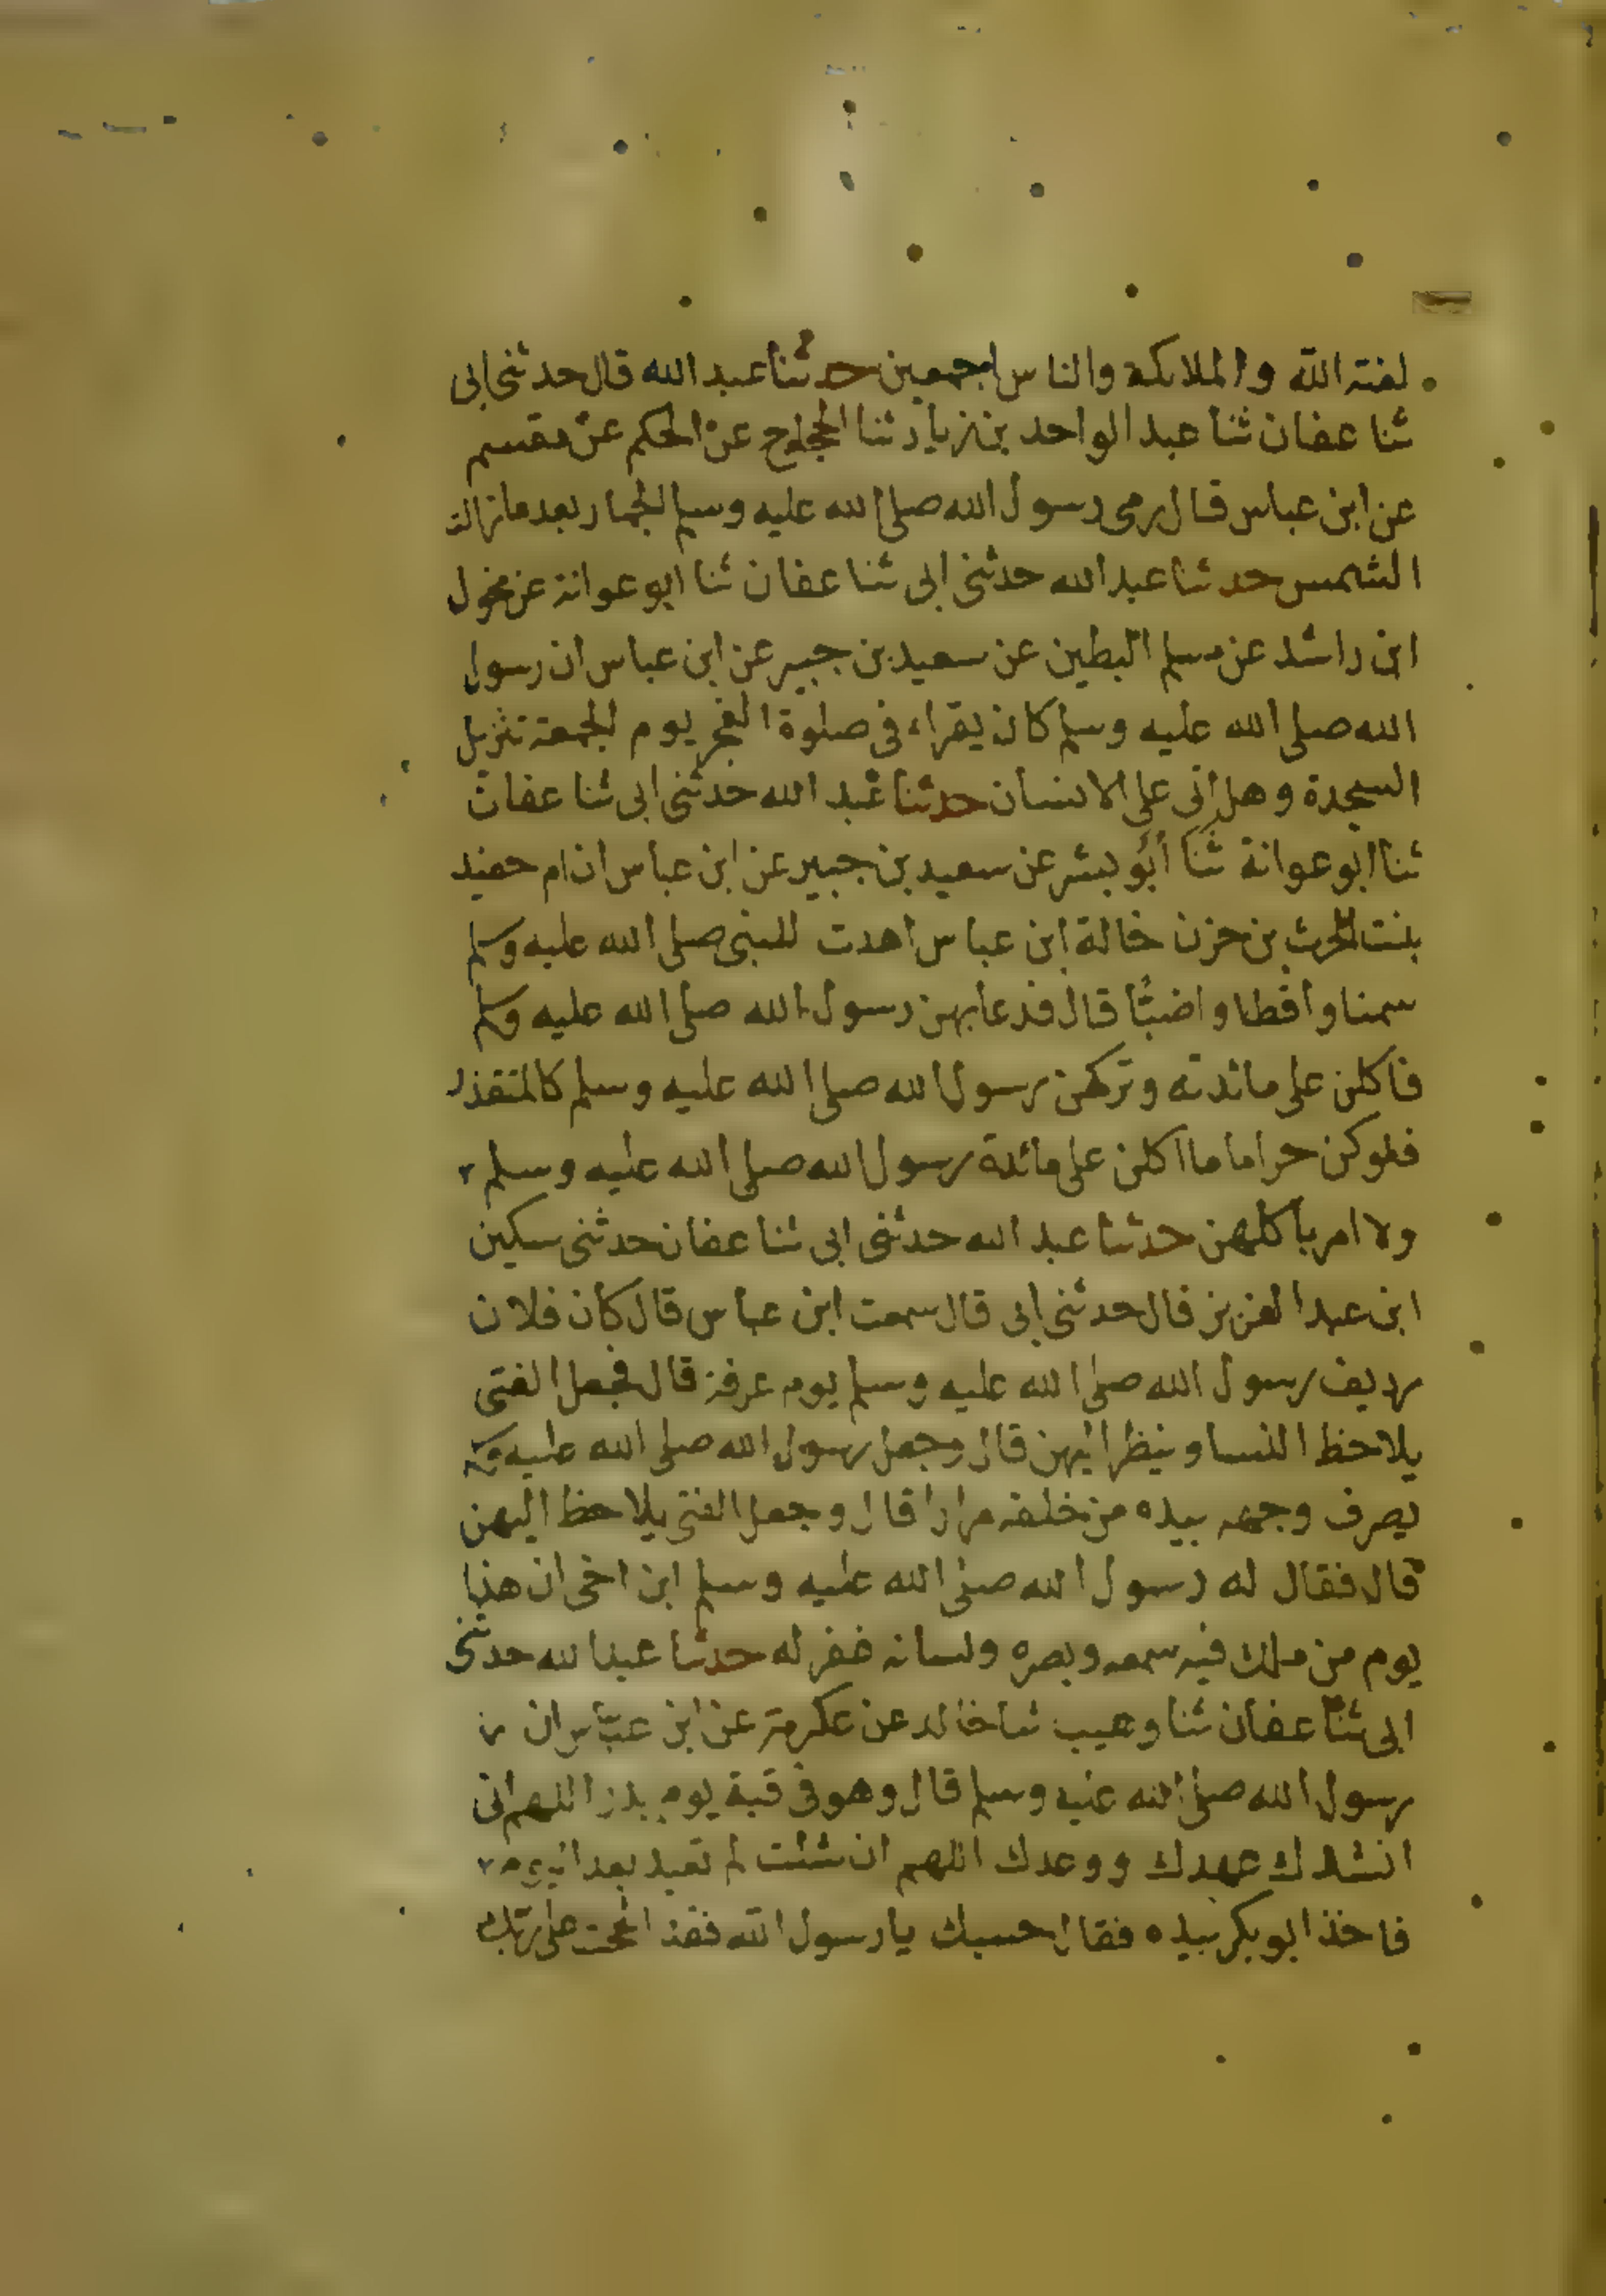 لعنة الله والملائكة والناس اجمعين حدثنا عبد الله قال حدثني ابي
ثنا عفان ثنا عبد الواحد بن زياد ثنا الحجاج عن الحكم عن مقسم
عن ابن عباس قال رمى رسول الله صلى الله عليه وسلم الجمار بعد ما زالت
الشمس حدثنا عبد الله حدثني ابي ثنا عفان ثنا ابو عوانة عن مخول
ابن راشد عن مسلم البطين عن سعيد بن جبير عن ابن عباس ان رسول
الله صلى الله عليه وسلم كان يقراء في صلوة الفجر يوم الجمعة تنزيل
السجدة وهل اتى على الانسان حدثنا عبد الله حدثني ابي ثنا عفان
ثنا ابو عوانة ثنا ابو بشر عن سعيد بن جبير عن ابن عباس ان ام حفيد
بنت الحرث بن حزن خالة ابن عباس اهدت للنبي صلى الله عليه وسلم
سمنا واقطا واضبًّا قال فدعا بهن رسول الله صلى الله عليه وسلم
فاكلن على مائدته وتركهن رسول الله صلى الله عليه وسلم كالمتقذر
فلو كن حراما ما اكلن على مائدة رسول الله صلى الله عليه وسلم
ولا امر باكلهن حدثنا عبد الله حدثني ابي ثنا عفان حدثني سكين
ابن عبد العزيز قال حدثني ابي قال سمعت ابن عباس قال كان فلان
رديف رسول الله صلى الله عليه وسلم يوم عرفة قال فجعل الفتى
يلاحظ النسا وينظر اليهن قال وجعل رسول الله صلى الله عليه وسلم
يصرف وجهه بيده من خلفه مرارا قال وجعل الفتى يلاحظ اليهن
قال فقال له رسول الله صلى الله عليه وسلم ابن اخي ان هذا
يوم من ملك فيه سمعه وبصره ولسانه غفر له حدثنا عبد الله حدثني
ابي ثنا عفان ثنا وهيب ثنا خالد عن عكرمة عن ابن عبّاس ان
رسول الله صلى الله عليه وسلم قال وهو في قبة يوم بدر اللهم اني
انشدك عهدك ووعدك اللهم ان شئت لم تعبد بعد اليوم
فاخذ ابو بكر بيده فقال حسبك يا رسول الله فقد الححت على ربّك